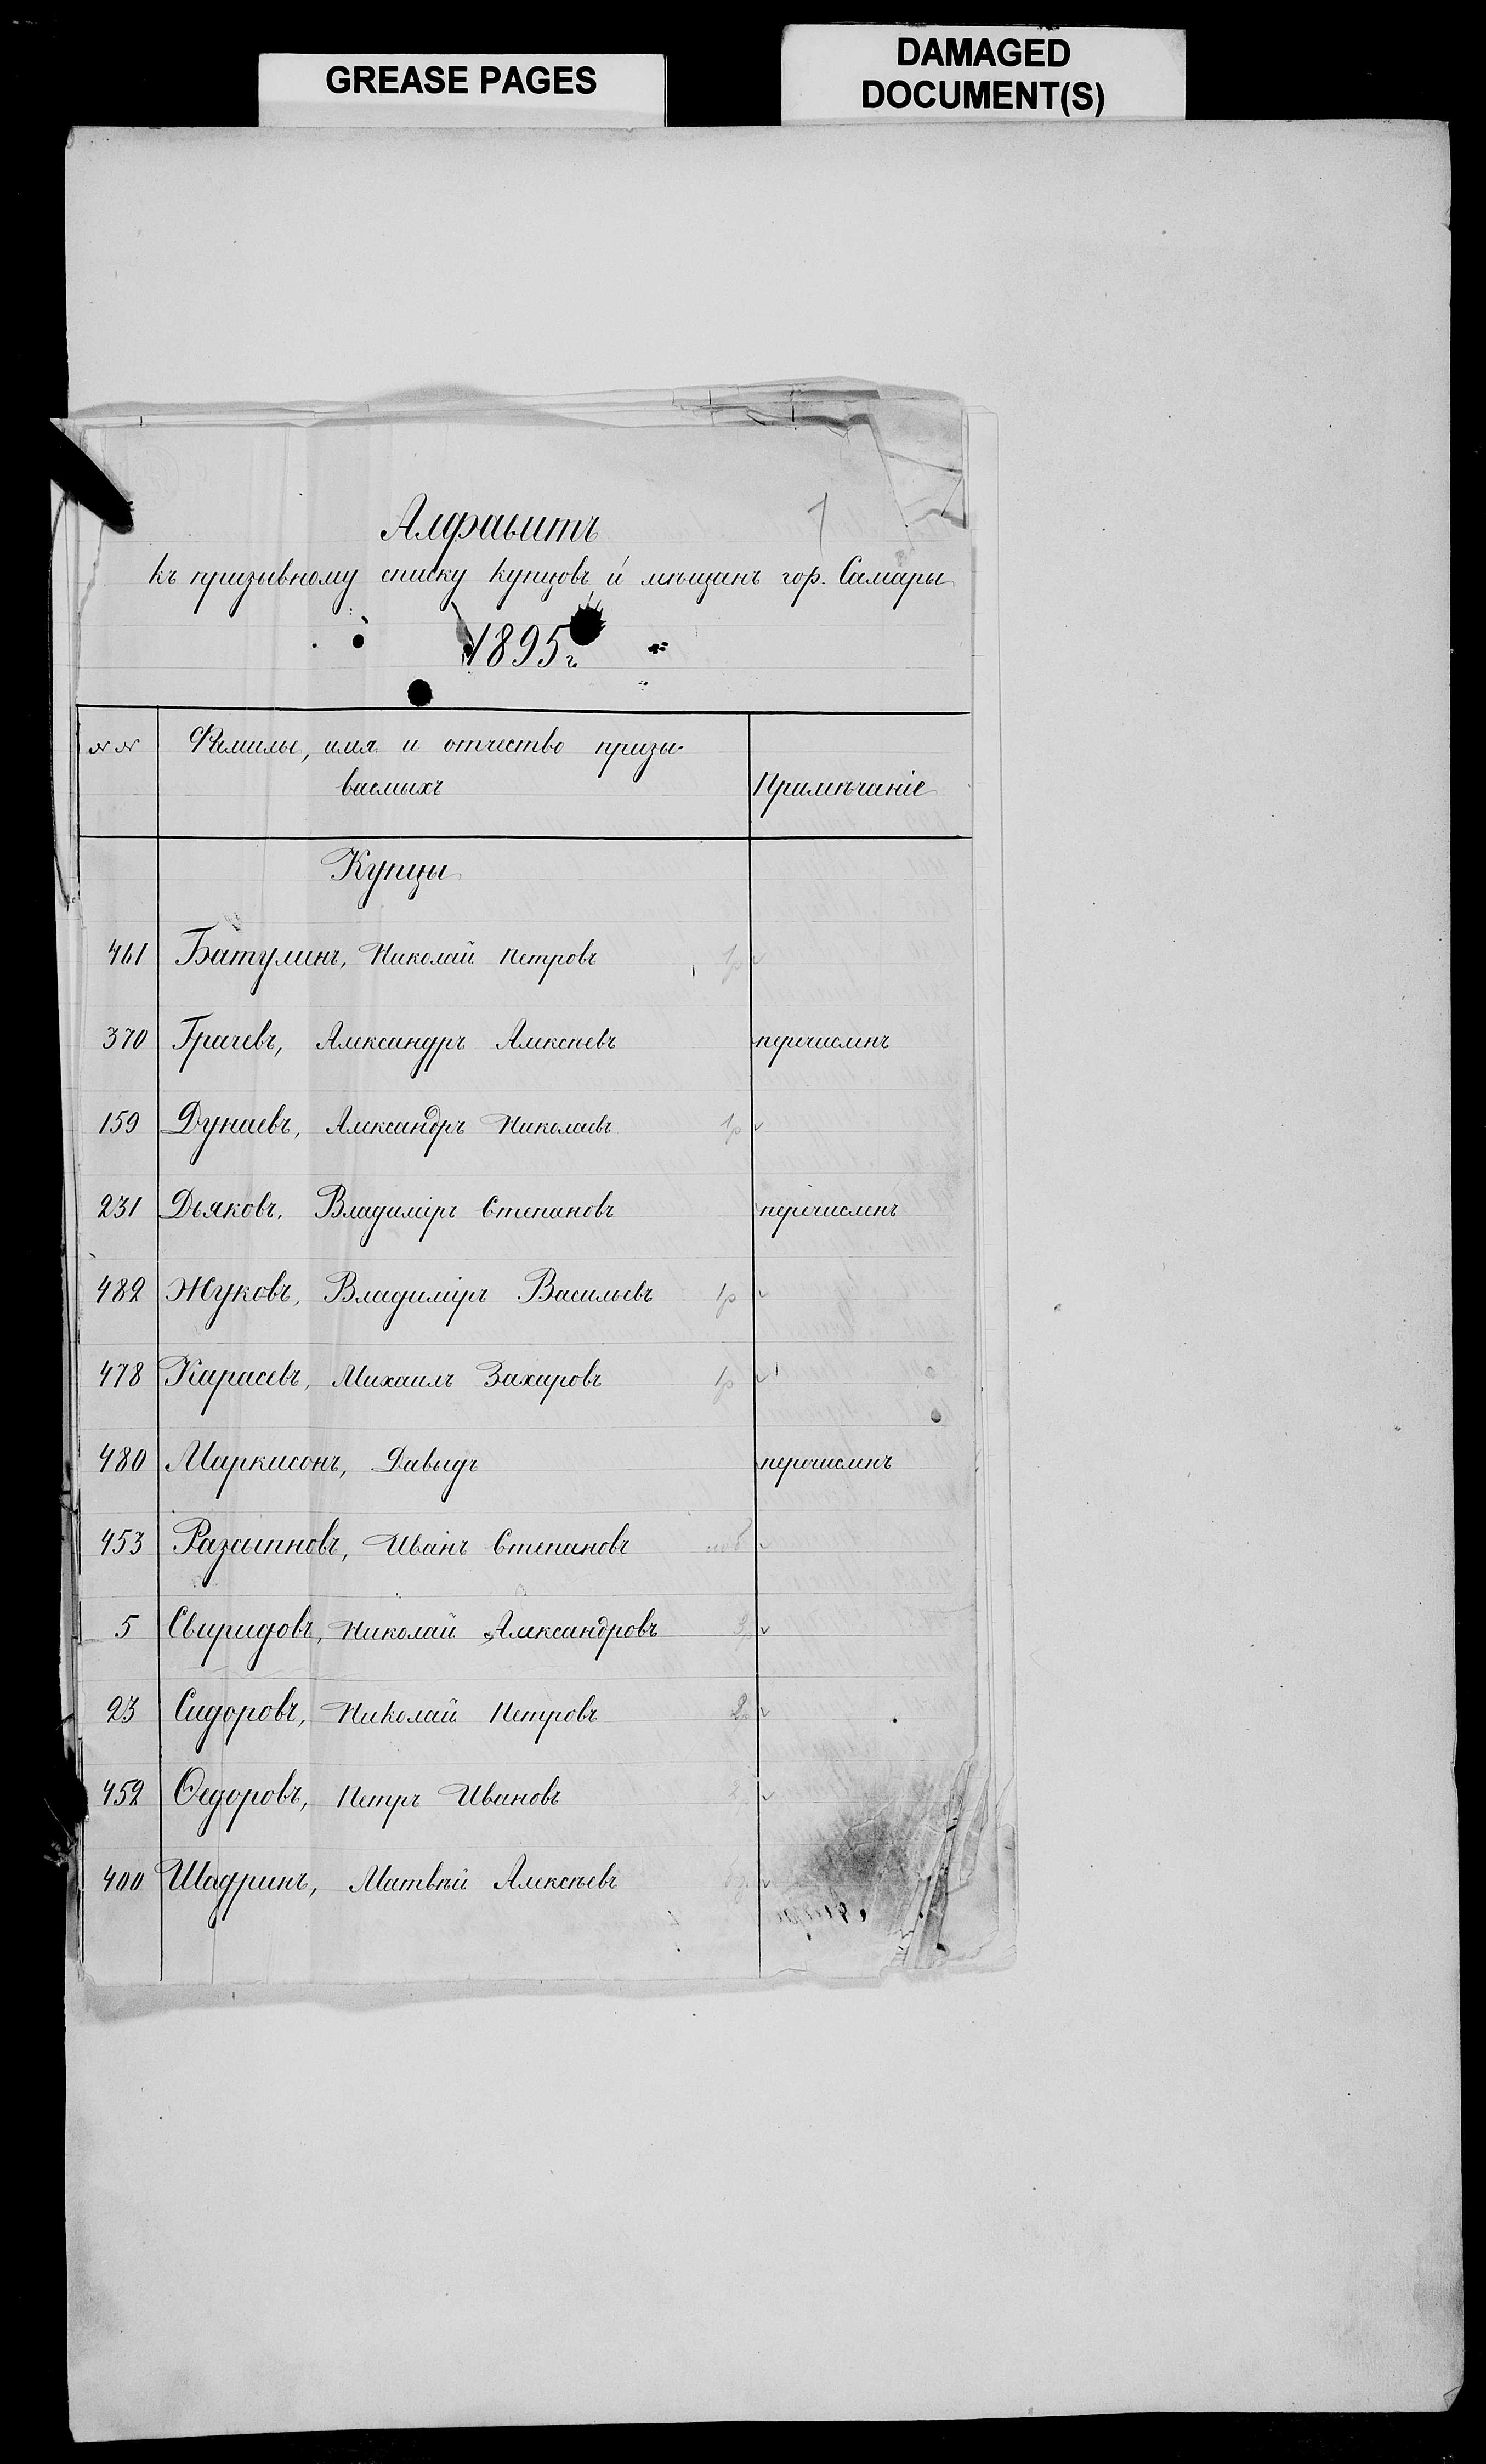 GREASE PAGES
DAMAGED
DOCUMENT(S)
1
Алфавитъ
къ призывному списку купцовъ и мѣщанъ гор. Самары
1895 г.
№№ Фамилье, имя и отчество призы-
ваемыхъ
Примѣчаніе
Купцы
461 Батулинъ, Николай Петровъ 1р ✓
370 Грачевъ, Александръ Алексѣевъ перечисленъ
159 Дунаевъ, Александръ Николаевъ 1р ✓
231 Дьяковъ, Владиміръ Степановъ перечисленъ
482 Жуковъ, Владиміръ Васильевъ 1р ✓
478 Карасевъ, Михаилъ Захаровъ 1р ✓
480 Маркисонъ, Давыдъ перечисленъ
453 Разсыпновъ, Иванъ Степановъ ✓
5 Свиридовъ, Николай Александровъ ✓
23 Сидоровъ, Николай Петровъ 2 ✓
452 Ѳедоровъ, Петръ Ивановъ 2 ✓
400 Шадринъ, Матвѣй Алексѣевъ ✓